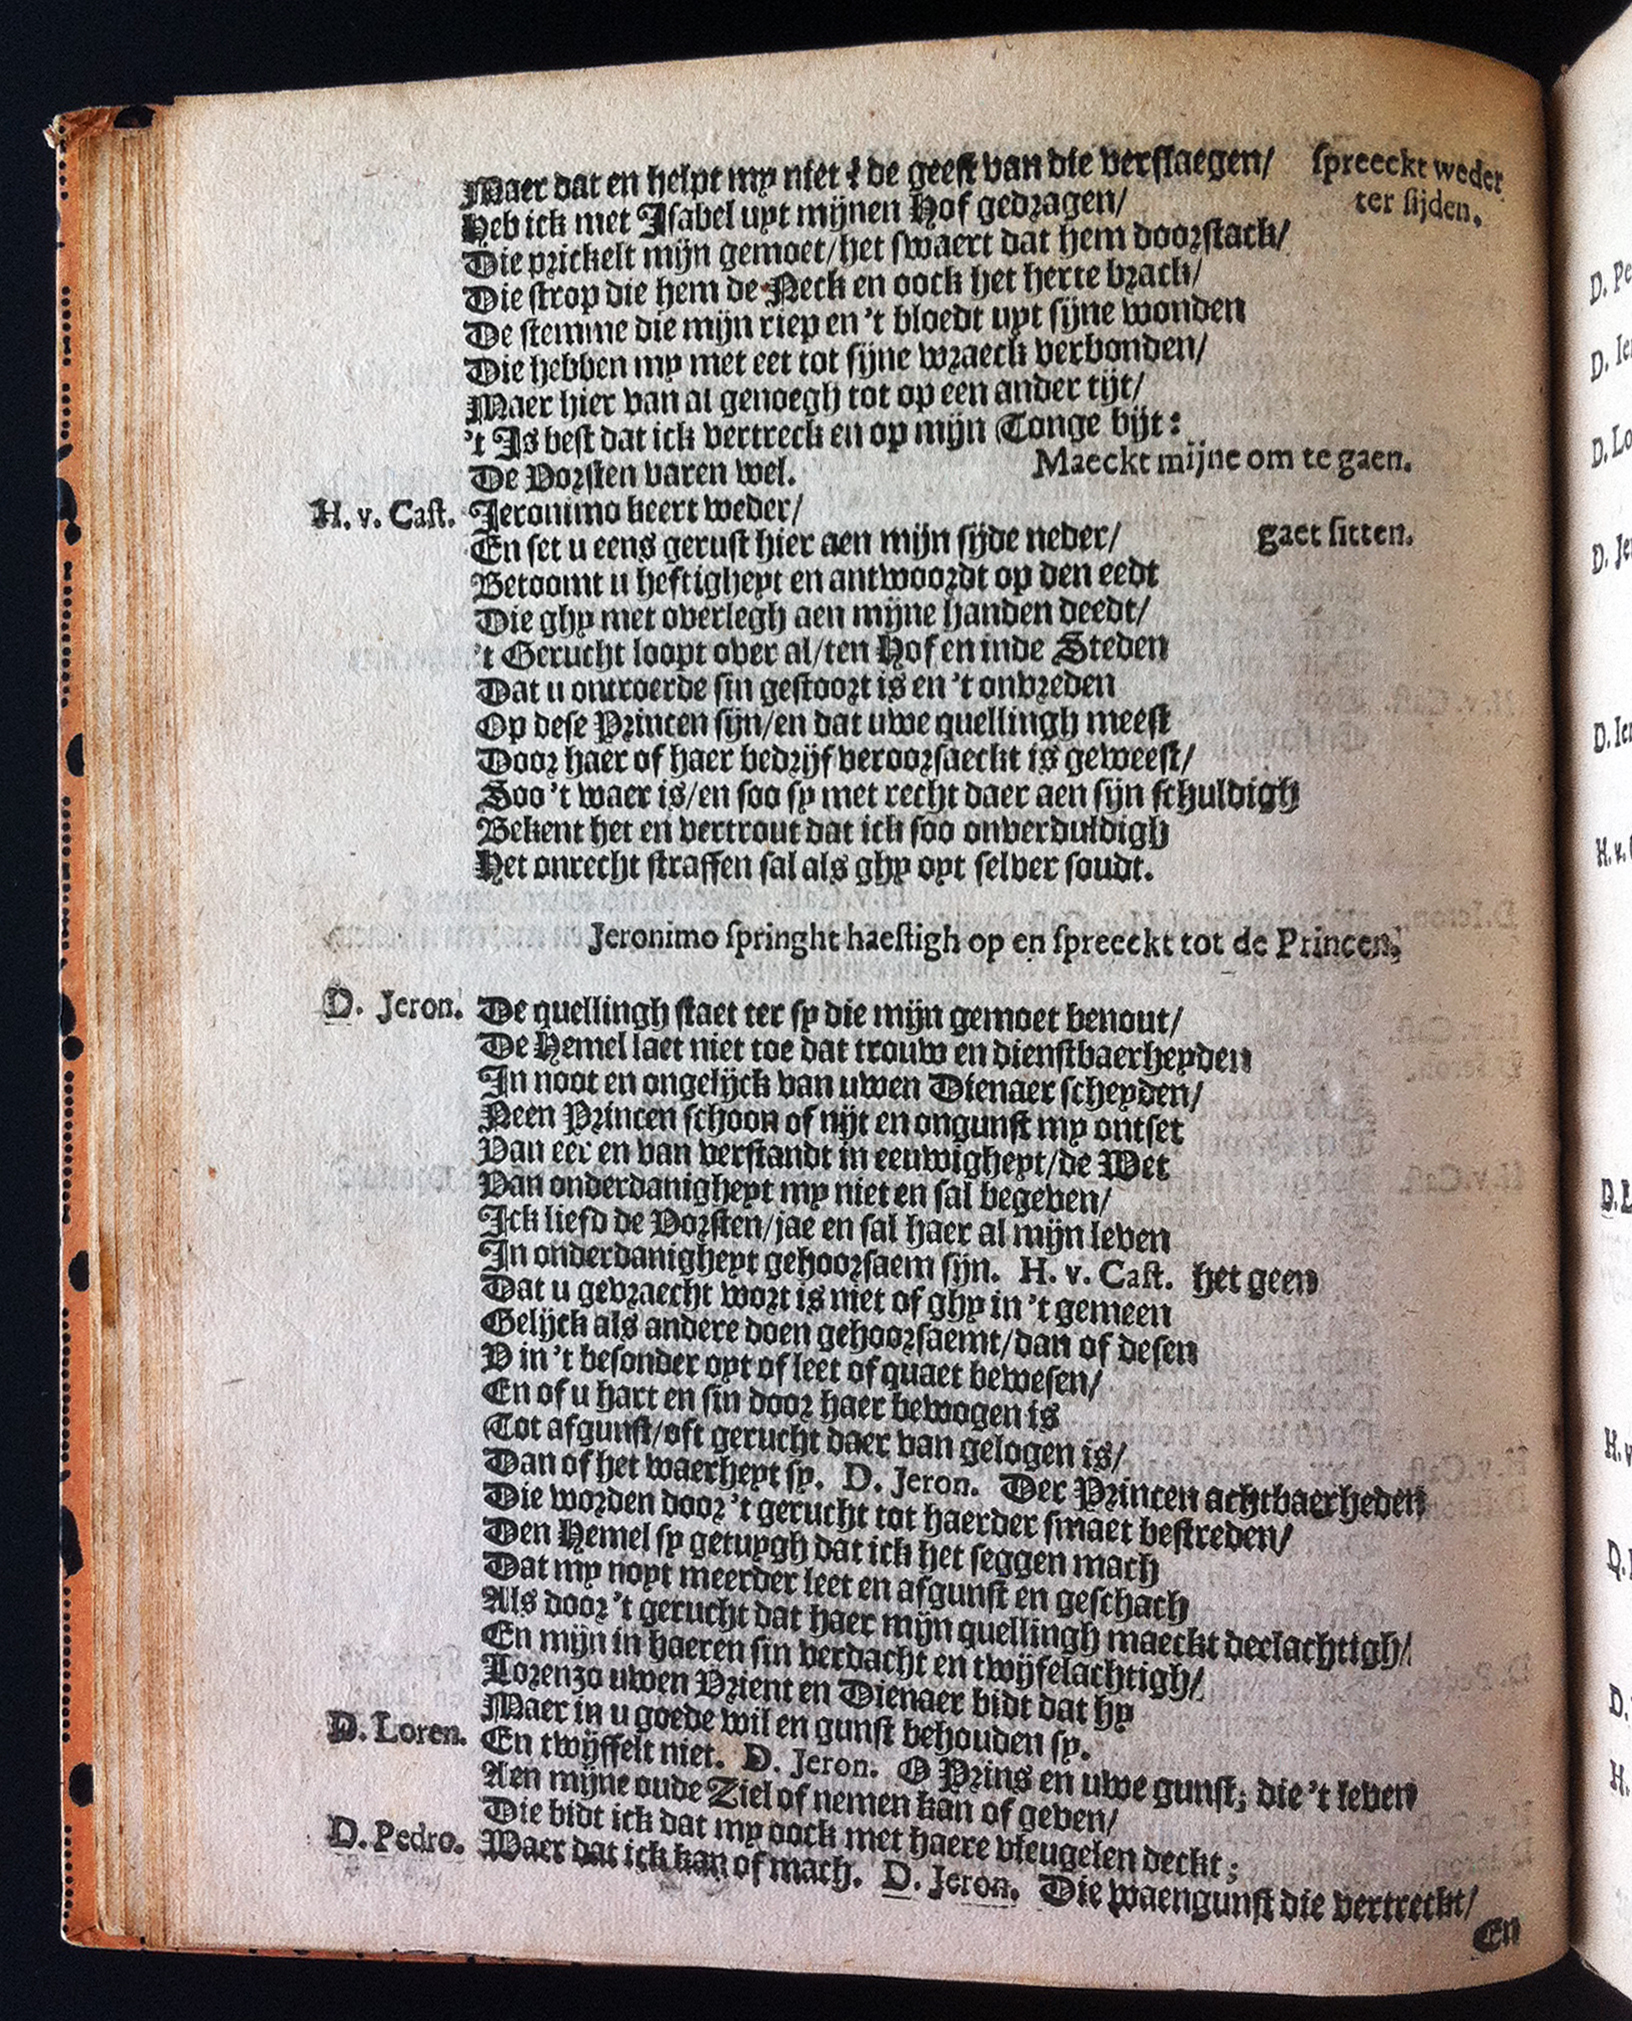 Maer dat en helpt my niet? de geest van die verslaegen/ spreeckt weder
Heb ick met Isabel uyt mijnen Hof gedragen/ ter sijden.
Die prickelt mijn gemoet/het swaert dat hem doorstack/
Die strop die hem de Neck en oock het herte brack/
De stemme die mijn riep en 't bloedt uyt sijne wonden
Die hebben my met eet tot sijne wraeck verbonden/
Maer hier van al genoegh tot op een ander tijt/
't Is best dat ick vertreck en op mijn Tonge bijt:
De Vorsten varen wel. Maeckt mijne om te gaen.
H. v. Cast. Jeronimo keert weder/
En set u eens gerust hier aen mijn sijde neder/ gaet sitten.
Betoomt u heftigheyt en antwoordt op den eedt
Die ghy met overlegh aen mijne handen deedt/
't Gerucht loopt over al/ten Hof en inde Steden
Dat u ontroerde sin gestoort is en 't onvreden
Op dese Princen sijn/en dat uwe quellingh meest
Door haer of haer bedrijf veroorsaeckt is geweest/
Soo 't waer is/en soo sy met recht daer aen sijn schuldigh
Bekent het en vertrout dat ick soo onverduldigh
Het onrecht straffen sal als ghy oyt selver soudt.
Jeronimo springht haestigh op en spreeckt tot de Princen.
D. Jeron. De quellingh staet ter sy die mijn gemoet benout/
De Hemel laet niet toe dat trouw en dienstbaerheyden
In noot en ongelijck van uwen Dienaer scheyden/
Neen Princen schoon of nijt en ongunst my ontset
Van eer en van verstandt in eeuwigheyt/de Wet
Van onderdanigheyt my niet en sal begeven/
Ick liefd de Vorsten/jae en sal haer al mijn leven
In onderdanigheyt gehoorsaem sijn. H. v. Cast. het geen
Dat u gevraecht wort is niet of ghy in 't gemeen
Gelijck als andere doen gehoorsaemt/dan of desen
V in 't besonder oyt of leet of quaet bewesen/
En of u hart en sin door haer bewogen is
Tot afgunst/oft gerucht daer van gelogen is/
Dan of het waerheyt sy. D. Jeron. Der Princen achtbaerheden
Die worden door 't gerucht tot haerder smaet bestreden/
Den Hemel sy getuygh dat ick het seggen mach
Dat my noyt meerder leet en afgunst en geschach
Als door 't gerucht dat haer mijn quellingh maeckt deelachtigh/
En mijn in haeren sin verdacht en twijfelachtigh/
Lorenzo uwen Vrient en Dienaer bidt dat hy
Maer in u goede wil en gunst behouden sy.
D. Loren. En twijffelt niet. D. Jeron. O Prins en uwe gunst; die 't leven
Aen mijne oude Ziel of nemen kan of geven/
Die bidt ick dat my oock met haere vleugelen deckt;
D. Pedro. Waer dat ick kan of mach. D. Jeron. Die waengunst die vertreckt/
En